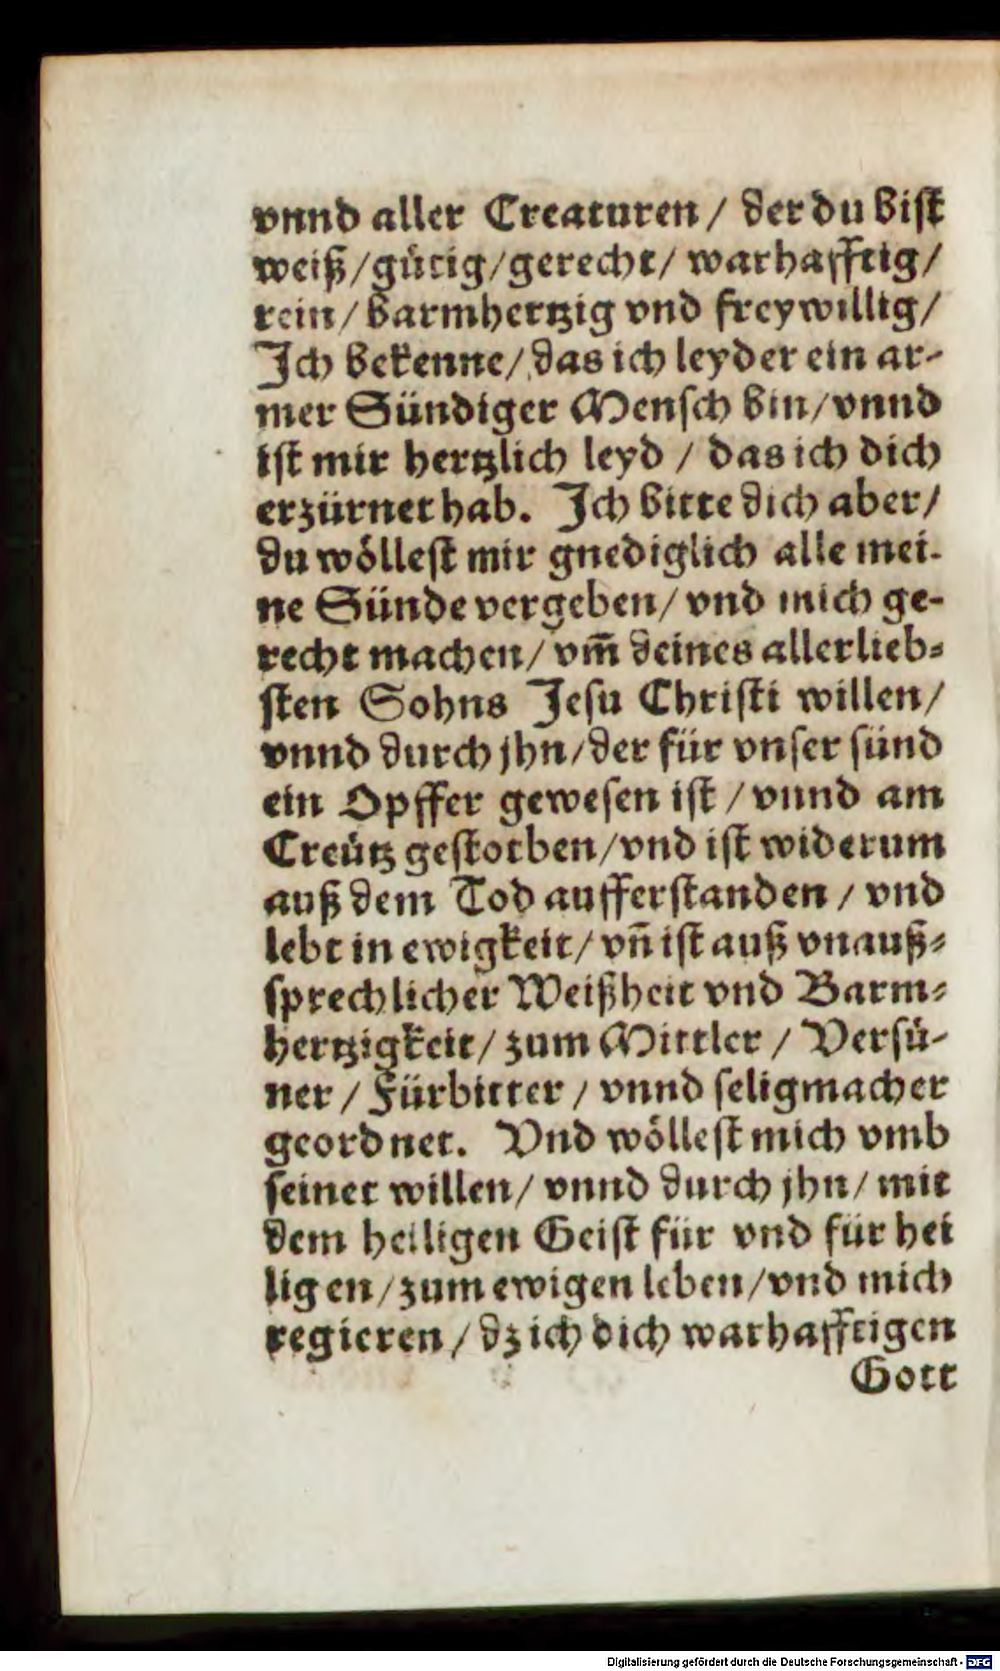 vnnd aller Creaturen / der du bist
weiß/gütig/gerecht/ warhafftig/
rein/ barmhertzig vnd freywillig/
Ich bekenne/ das ich leyder ein ar-
mer Sündiger Mensch bin/vnnd
ist mir hertzlich leyd / das ich dich
erzürnet hab. Ich bitte dich aber/
du wöllest mir gnediglich alle mei-
ne Sünde vergeben/ vnd mich ge-
recht machen/ vm̃ deines allerlieb-
sten Sohns Jesu Christi willen/
vnnd durch jhn/der für vnser sünd
ein Opffer gewesen ist / vnnd am
Creütz gestorben/vnd ist widerum
auß dem Tod aufferstanden / vnd
lebt in ewigkeit/ vñ ist auß vnauß-
sprechlicher Weißheit vnd Barm-
hertzigkeit/ zum Mittler / Versü-
ner / Fürbitter / vnnd seligmacher
geordnet. Vnd wöllest mich vmb
seinet willen/ vnnd durch jhn/ mit
dem heiligen Geist für vnd für hei
ligen/zum ewigen leben/vnd mich
regieren/ dz ich dich warhafftigen
Gott
Digitalisierung gefördert durch die Deutsche Forschungsgemeinschaft - DFG